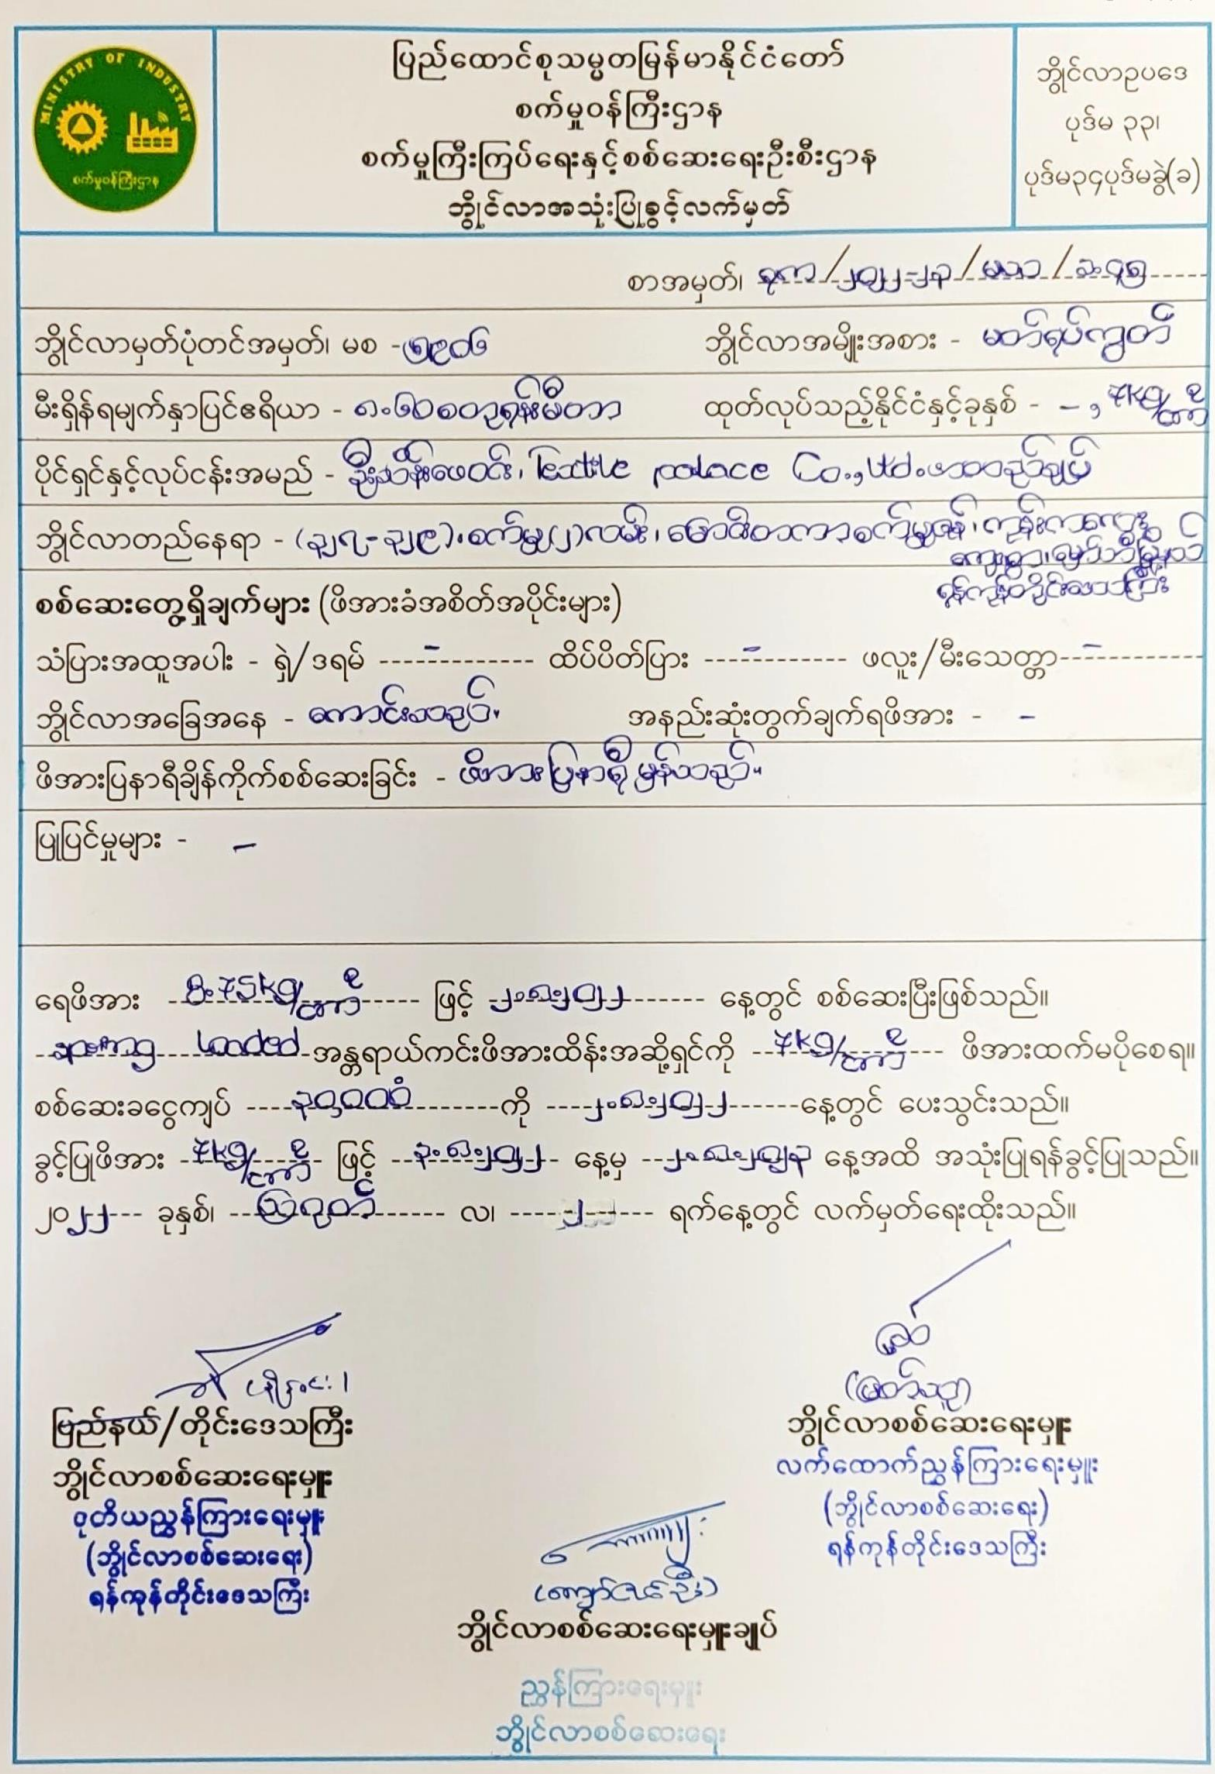 MINISTRY OF INDUSTRY
စက်မှုဝန်ကြီးဌာန
ပြည်ထောင်စုသမ္မတမြန်မာနိုင်ငံတော်
စက်မှုဝန်ကြီးဌာန
စက်မှုကြီးကြပ်ရေးနှင့်စစ်ဆေးရေးဦးစီးဌာန
ဘွိုင်လာအသုံးပြုခွင့်လက်မှတ်
ဘွိုင်လာဥပဒေ
ပုဒ်မ ၃၃၊
ပုဒ်မ၃၄ပုဒ်မခွဲ(ခ)
စာအမှတ်၊ ရက/၂၀၂၂-၂၃/
ဘွိုင်လာမှတ်ပုံတင်အမှတ်၊ မစ - ၅၉၀၆ ဘွိုင်လာအမျိုးအစား - မတ်ရပ်ကွတ်
မီးရှိန်ရမျက်နှာပြင်ဧရိယာ - စတုရန်းမီတာ ထုတ်လုပ်သည့်နိုင်ငံနှင့်ခုနှစ် - –, 7kg/
ပိုင်ရှင်နှင့်လုပ်ငန်းအမည် - ဦးသိန်းဖေဝင်း၊ Textile palace Co.,Ltd. အထည်ချုပ်
ဘွိုင်လာတည်နေရာ - (၃၂၇-၃၂၉)၊ စက်မှု(၂)လမ်း၊ စက်မှုဇုန်၊
ရန်ကုန်တိုင်းဒေသကြီး
စစ်ဆေးတွေ့ရှိချက်များ (ဖိအားခံအစိတ်အပိုင်းများ)
သံပြားအထူအပါး - ရှဲ/ဒရမ် - ထိပ်ပိတ်ပြား - ဖလူး/မီးသေတ္တာ -
ဘွိုင်လာအခြေအနေ - ကောင်းသည်။ အနည်းဆုံးတွက်ချက်ရဖိအား - -
ဖိအားပြနာရီချိန်ကိုက်စစ်ဆေးခြင်း - ဖိအားပြနာရီ မှန်သည်။
ပြုပြင်မှုများ - -
ရေဖိအား 8.75kg/ ဖြင့် ၂.၈.၂၀၂၂ နေ့တွင် စစ်ဆေးပြီးဖြစ်သည်။
spring loaded အန္တရာယ်ကင်းဖိအားထိန်းအဆို့ရှင်ကို 7kg/ ဖိအားထက်မပိုစေရ။
စစ်ဆေးခငွေကျပ် ၃၀,၀၀၀ ကို ၂.၈.၂၀၂၂ နေ့တွင် ပေးသွင်းသည်။
ခွင့်ပြုဖိအား 7kg/ ဖြင့် ၃.၈.၂၀၂၂ နေ့မှ ၂.၈.၂၀၂၃ နေ့အထိ အသုံးပြုရန်ခွင့်ပြုသည်။
၂၀၂၂ ခုနှစ်၊ ဩဂုတ် လ၊ ၂ ရက်နေ့တွင် လက်မှတ်ရေးထိုးသည်။
ပြည်နယ်/တိုင်းဒေသကြီး
ဘွိုင်လာစစ်ဆေးရေးမှူး
ဒုတိယညွှန်ကြားရေးမှူး
(ဘွိုင်လာစစ်ဆေးရေး)
ရန်ကုန်တိုင်းဒေသကြီး
(မြတ်သူ)
ဘွိုင်လာစစ်ဆေးရေးမှူး
လက်ထောက်ညွှန်ကြားရေးမှူး
(ဘွိုင်လာစစ်ဆေးရေး)
ရန်ကုန်တိုင်းဒေသကြီး
(ကျော်ဇင်ဦး)
ဘွိုင်လာစစ်ဆေးရေးမှူးချုပ်
ညွှန်ကြားရေးမှူး
ဘွိုင်လာစစ်ဆေးရေး